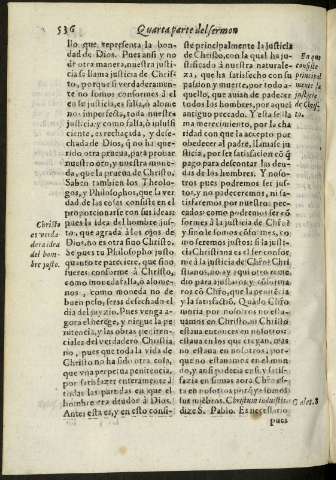 536
Quarta parte del sermon
llo que representa la bon-
dad de Dios. Pues ansi y no
de otra manera, nuestra justi
cia se llama justicia de Chris-
to, porque si verdaderamen-
te no somos conformes à el
en su justicia, es falsa, ò alome
nos imperfecta, toda nuestra
justicia, y como falsa, ò insufi
ciente, es rechaçada, y dese-
chada de Dios, q̃ no ha que-
rido otra pieça, para probar
nuestro oro, y nuestra mone-
da, que la prueua de Christo.
Saben tambien los Theolo-
gos, y Philosophos, que la ver
dad de las cosas consiste en el
proporcionarse con sus ideas
pues la idea del hombre jus-
to, que agrada à los ojos de
Dios, no es otra sino Christo.
Se pues tu Philosopho justo
quanto te pareciere, que sino
fueres conforme à Christo,
como moneda falsa, ò alome
nos, como moneda no de
buen pelo, seras desechado el
dia del juyzio. Pues venga a-
gora el herege, y niegue la pe
nitencia, y las obras peniten-
ciales del verdadero Christia
no, pues que toda la vida de
Christo no ha sido otra cosa,
que vna perpetua penitencia,
por satisfazer enteramente à
todas las partidas en que el
hombre era deudor à Dios.
Antes esta es, y en esto consi-
Christo
es verda
dera idea
del hom-
bre justo.
ste principalmente la justicia
de Christo, con la qual ha jus-
tificado à nuestra naturale-
za, que ha satisfecho con su
passion, y muerte, por todo a-
quello, que auian de padecer
todos los hombres, por aquel
antiguo pecado. Y esta su di-
na merecimiento, por la cha-
ridad con que la accepto por
obedecer al padre, llamase ju
sticia, por ser satisfacion cõ q̃
pago para descontar las deu-
das de los hombres. Y noso-
tros pues pudieramos ser jus-
tos, y no padeceremos, ni sa-
tisfaremos por nuestros peca-
dos? Como seremos confor-
mes à la justicia de Christ
y sino le somos cõformes, co-
mo seremos justos: si la justi-
cia Christiana es el ser confor-
me à la justicia de Christ Chri
stianos, no ay aqui otro reme
dio para justificaros, y confor-
maros cõ Christo, que la penitẽcia
y la satisfactiõ. Quado Christo
moria por nosotros no esta-
uamos en Christo. Christo
estaua por nosotros: si
estaua en los que creyan, mas
no estaua por nosotros, sino
que no estauamos en el mun-
do, y ansi padecia en si, y satis-
fazia en si mas aora Christo es-
ta en nosotros pues q̃ somos
sus miẽbros. Christum induistis
dize S. Pablo. Es necessario
pues
En que
consiste
principal
mente la
justicia
de Christo
Galat. 3